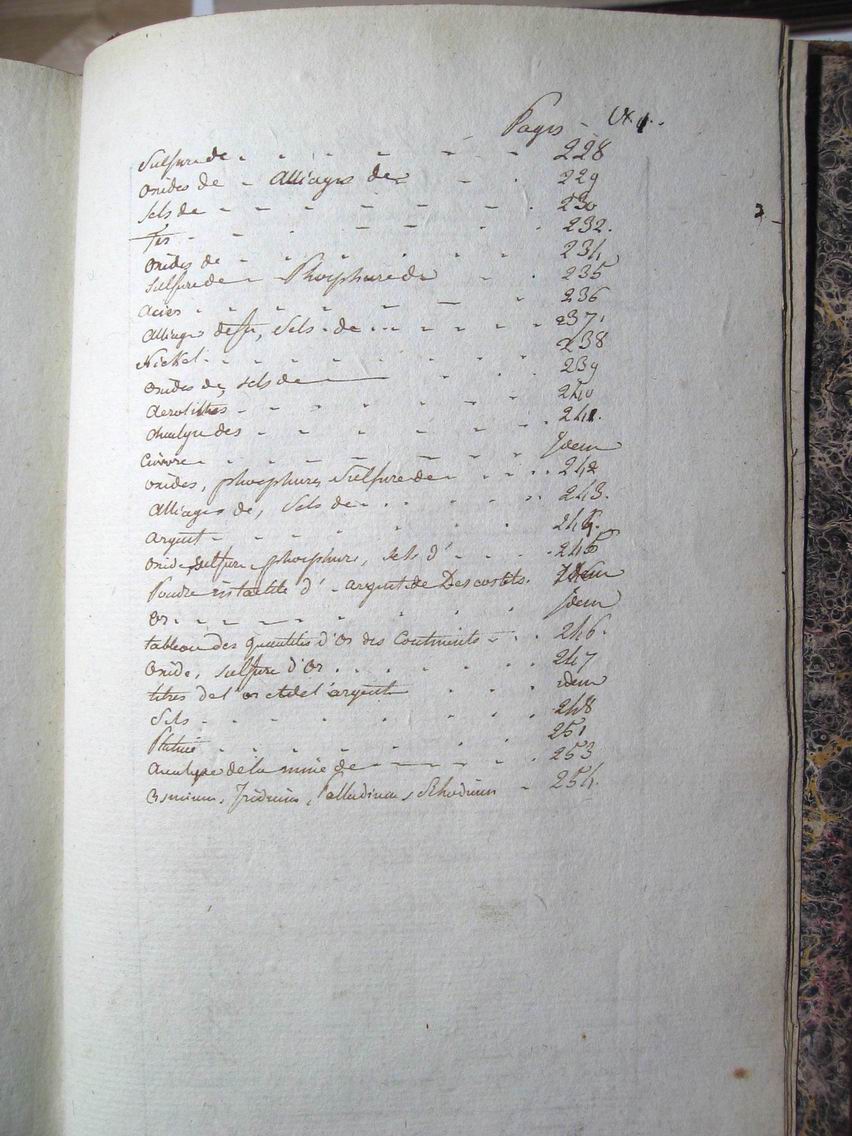 Pages
Sulfure de - - - - - - - 228
Oxides de - Alliages de - - 229
Sels de - - - - - - - 230
Fer - - - - - - 232.
Oxides de - - - - - - 234
Sulfure de - Phosphure de - - 235
Acier - - - - - - - 236
Alliages de fer, Sels de - - - - - 237.
Nickel - - - - - - - 238
Oxides de, sels de - - - 239
Aerolithes - - - - - - 240
Analyse des - - - - - - 241.
Cuivre - - - - - - - Idem
Oxides, phosphure, Sulfure de - - - - 242
Alliages de, Sels de - - - - - - 243.
Argent - - - - - - - 244.
Oxide, sulfure phosphure, sels d' - - - - 245
Poudre d' argent de Descostils. Idem
Or - - - - - - - Idem
tableau des quantités d'Or des Continents - - - 246.
Oxide, sulfure d'Or - - - - - - 247
titres de l'or et de l'argent - - - idem
Sels - - - - - - - 248
Platine - - - - - - 251
Analyse de la mine de - - - - - - 253
Osmium, Iridium, Palladium, Rhodium - 254.